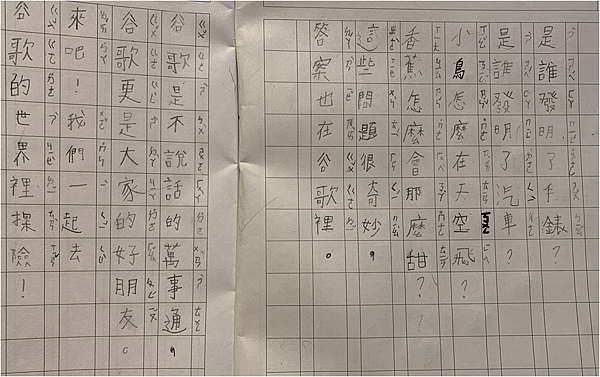 是誰發明了手錶？
是誰發明了汽車？
小鳥怎麼在天空飛？
香蕉怎麼會那麼甜？
這些問題很奇妙，
答案也在谷歌裡。
谷歌是不說話的萬事通，
谷歌更是大家的好朋友。
來吧！我們一起去
谷歌的世界裡探險！